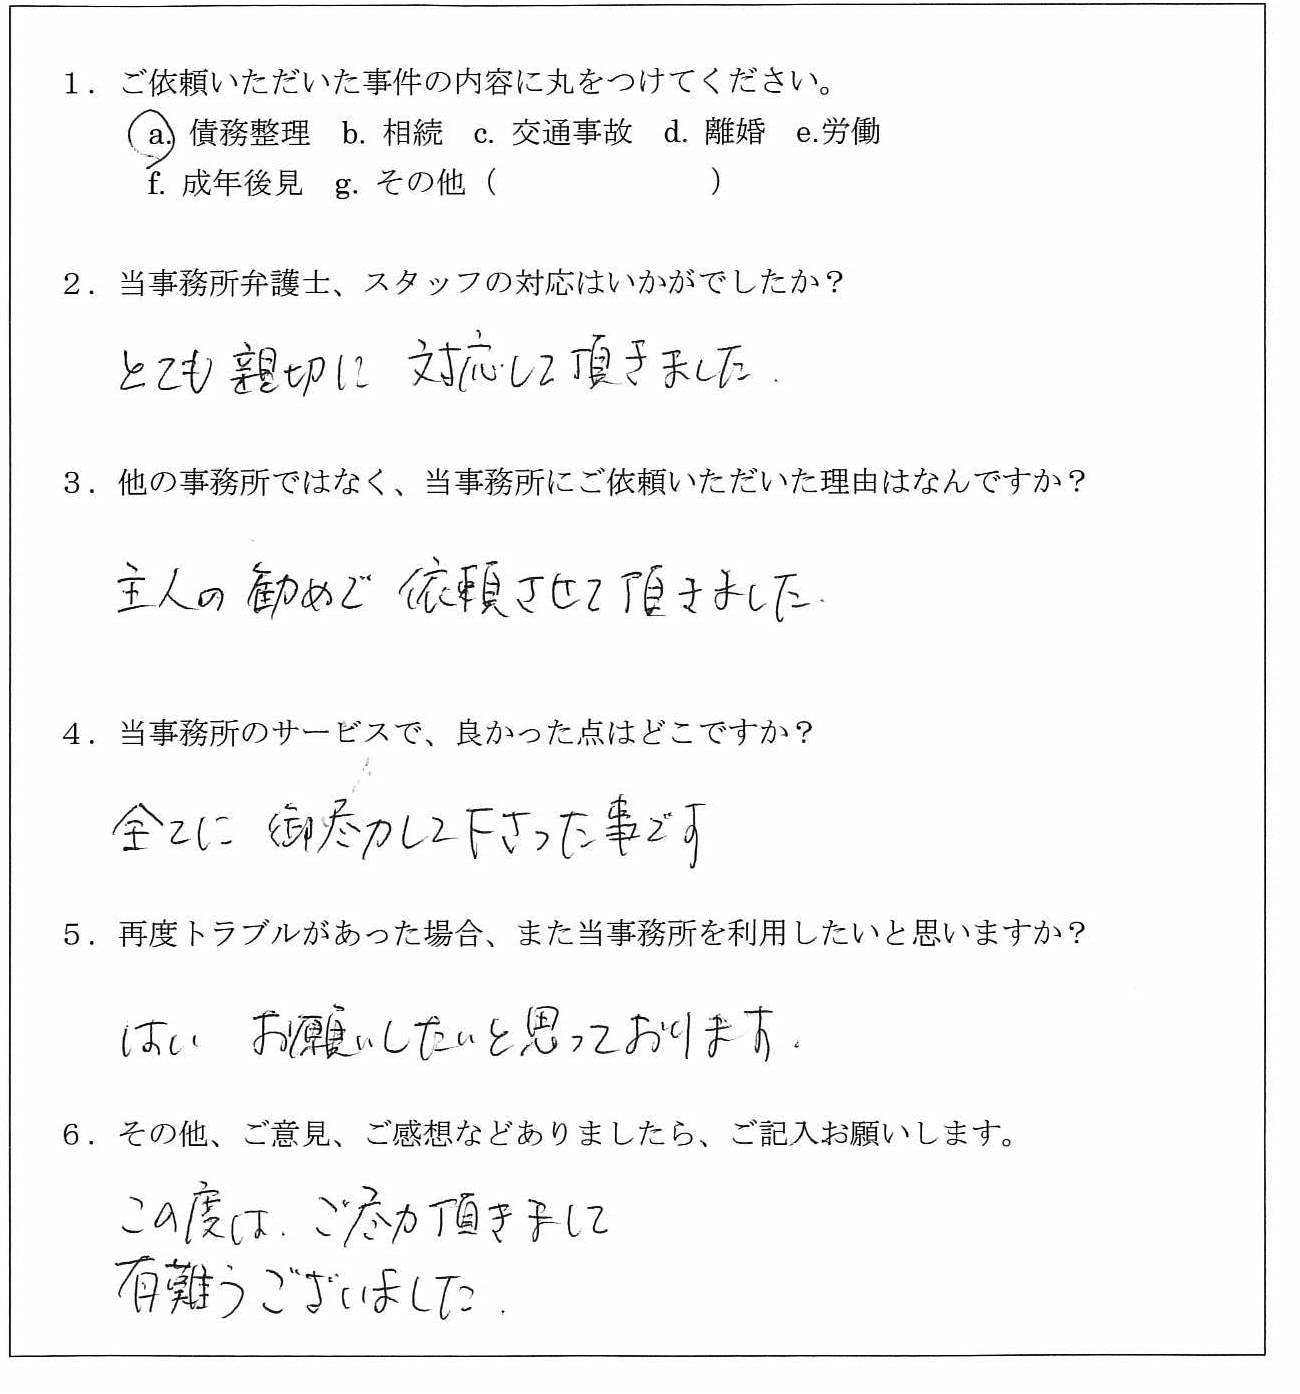 1．ご依頼いただいた事件の内容に丸をつけてください。
a. 債務整理　b. 相続　c. 交通事故　d. 離婚　e.労働
f. 成年後見　g. その他（　　　　　　　）
2．当事務所弁護士、スタッフの対応はいかがでしたか？
とても親切に 対応して頂きました.
3．他の事務所ではなく、当事務所にご依頼いただいた理由はなんですか？
主人の勧めで 依頼させて頂きました.
4．当事務所のサービスで、良かった点はどこですか？
全てに 御尽力して下さった事です
5．再度トラブルがあった場合、また当事務所を利用したいと思いますか？
はい お願いしたいと思っております.
6．その他、ご意見、ご感想などありましたら、ご記入お願いします。
この度は. ご尽力頂きまして
有難うございました.